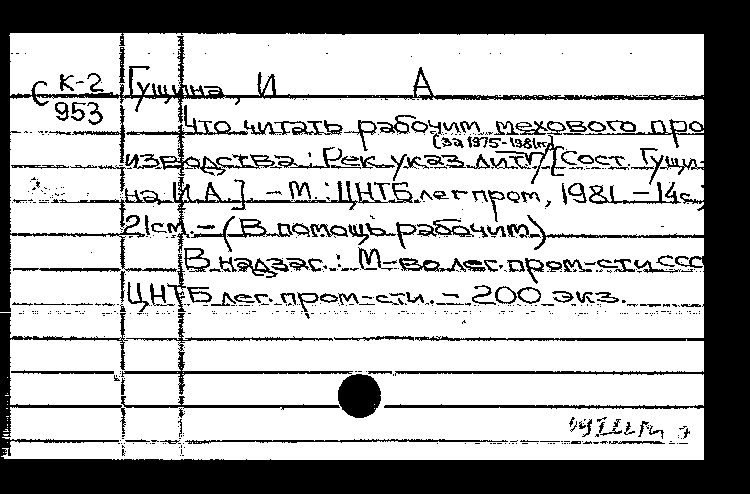 С К-2 Гущина, И А
953
Что читать рабочим мехового про
[за 1975-1981гг]
изводства: Рек. указ. лит. / [Сост. Гущи-
на И.А.]. - М.: ЦНТБ легпром, 1981. - 14с.;
21см. - (В помощь рабочим)
В надзаг.: М-во лег. пром-сти ССС
ЦНТБ лег. пром-сти. - 200 экз.